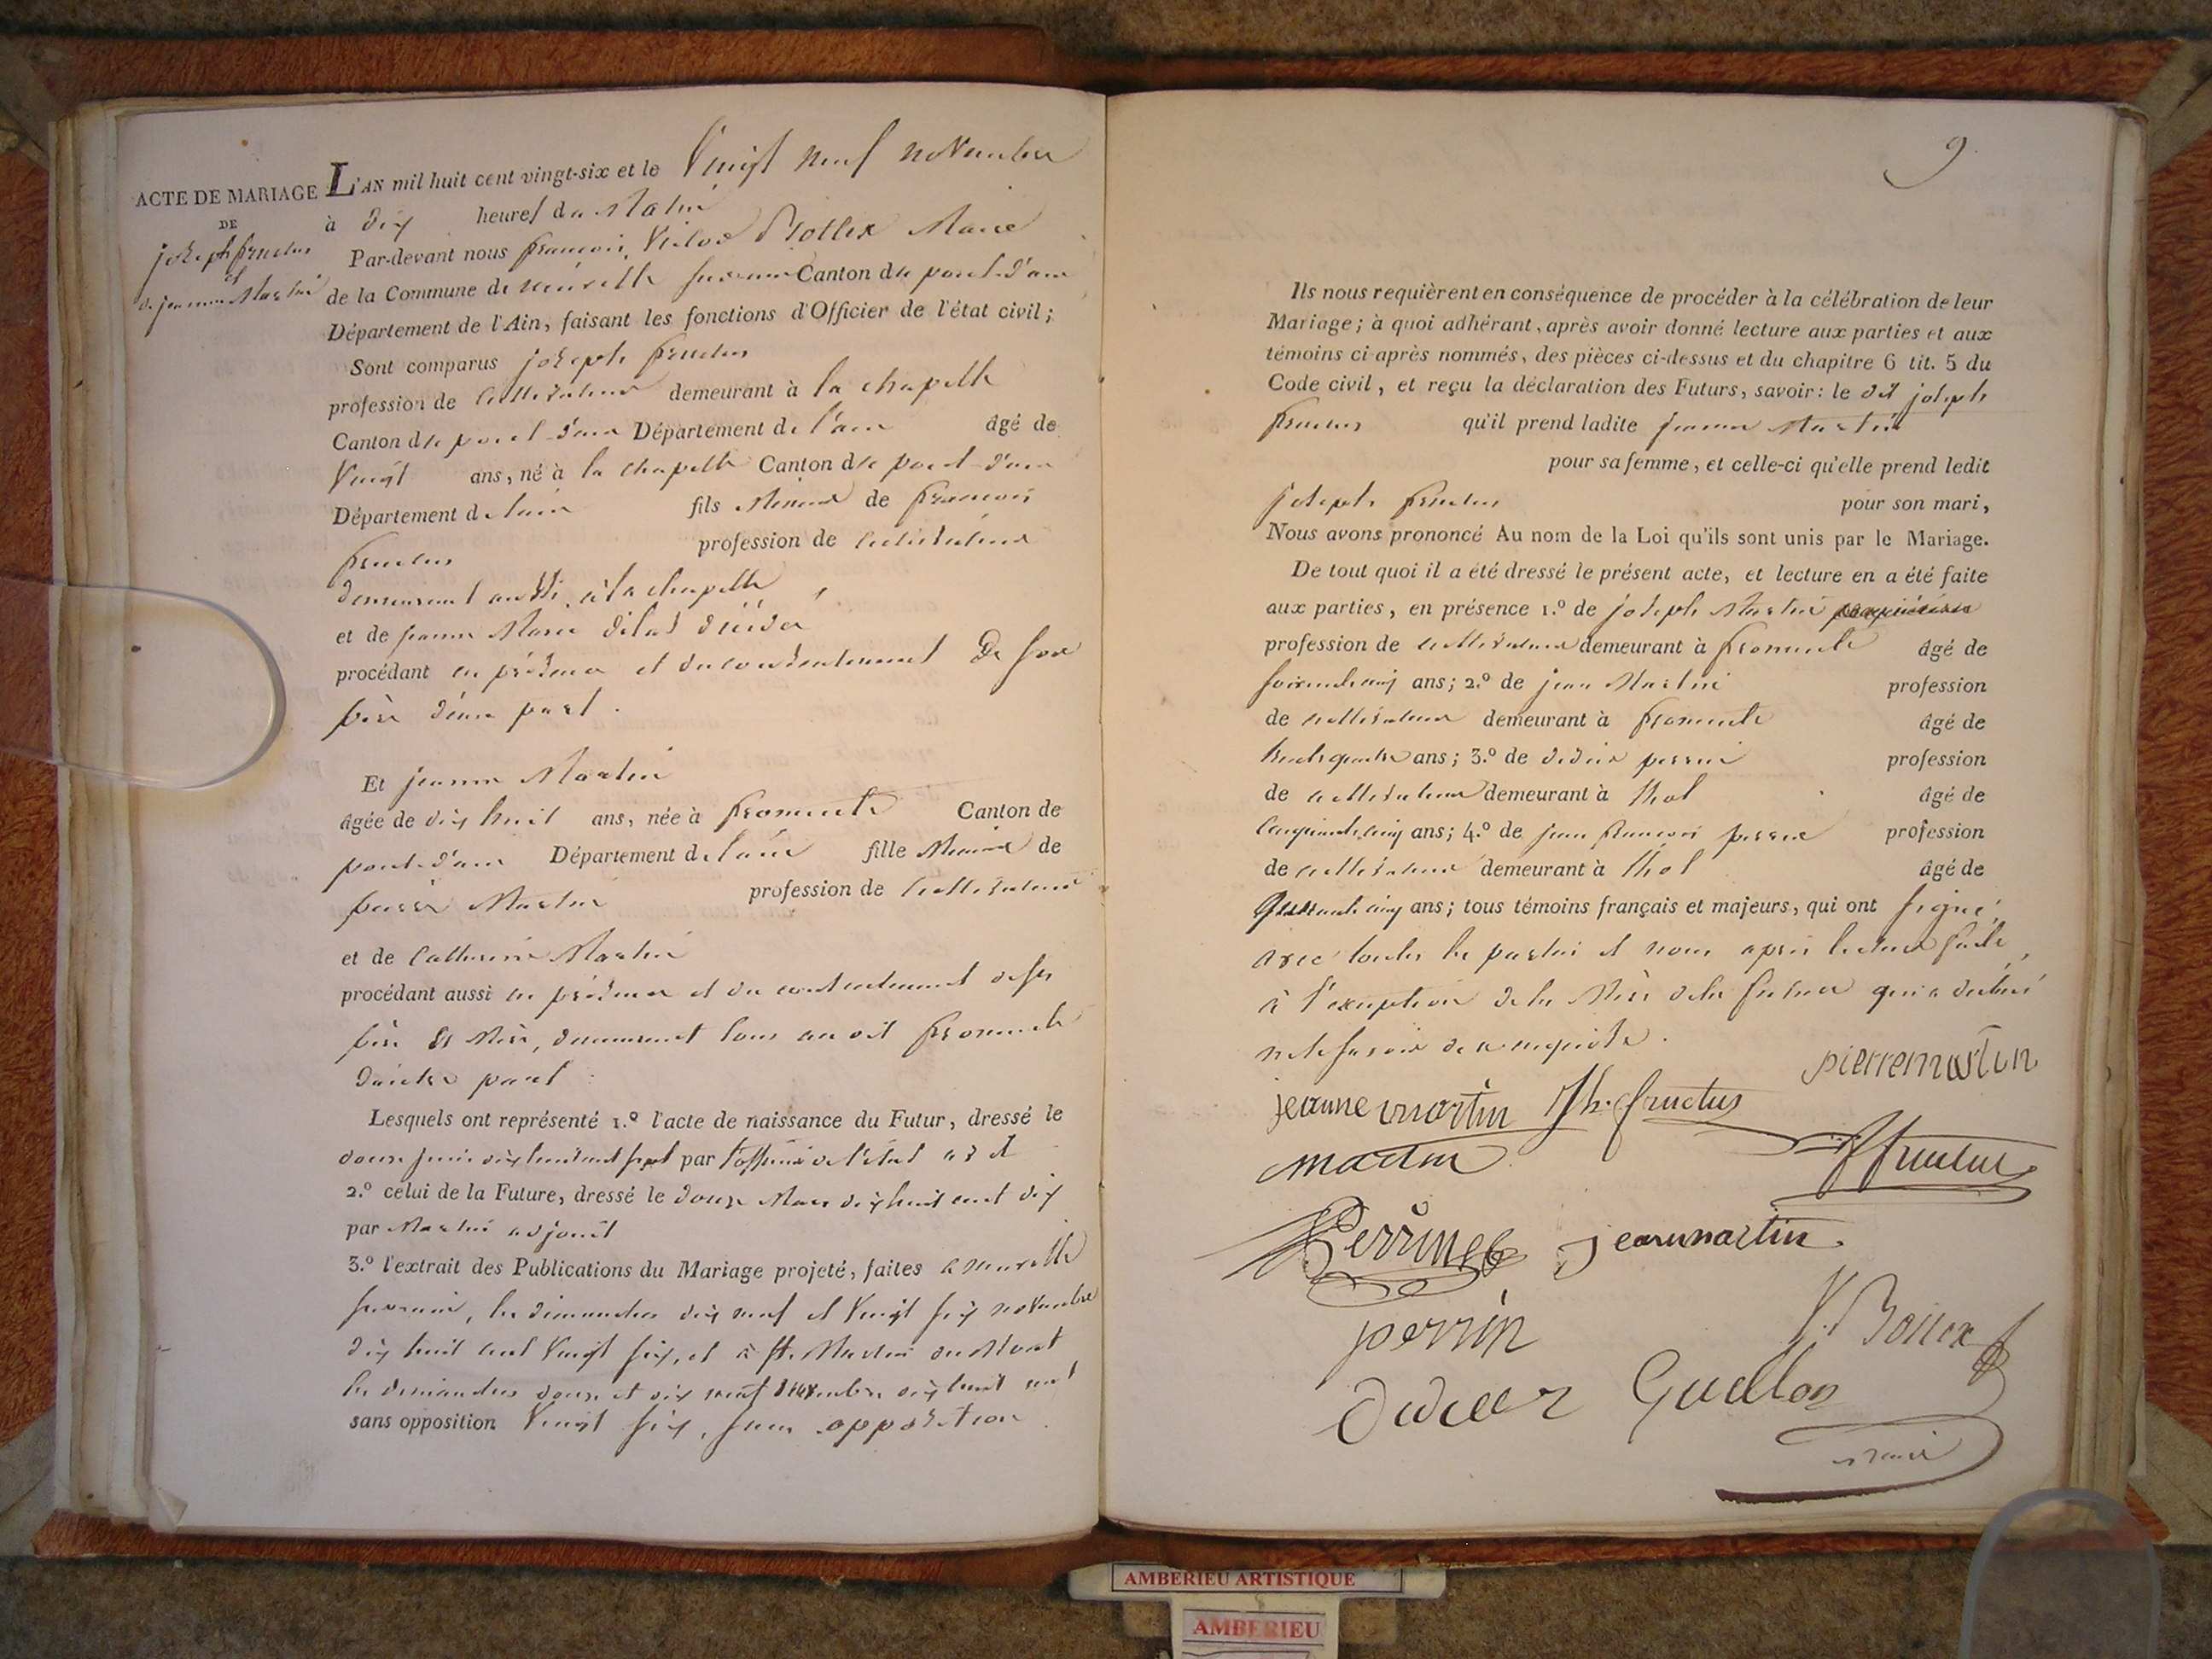 ACTE DE MARIAGE
DE
joseph fructus
et
de jeanne Martin
L'AN mil huit cent vingt-six et le Vingt neuf novembre
à dix heures du Matin
Par-devant nous françois Victor Bottex Maire
de la Commune de neuville sur ain Canton de pont-d'ain
Département de l'Ain, faisant les fonctions d'Officier de l'état civil;
Sont comparus joseph fructus
profession de cultivateur demeurant à la chapelle
Canton de pont-d'ain Département de l'ain âgé de
Vingt ans, né à la chapelle Canton de pont-d'ain
Département de l'ain fils Mineur de françois
fructus profession de cultivateur
demeurant aussi à la chapelle
et de jeanne Marie décédée
procédant en présence et du consentement De son
père d'une part.
Et jeanne Martin
âgée de dix huit ans, née à fromente Canton de
pont-d'ain Département de l'ain fille Mineure de
pierre Martin profession de cultivateur
et de Catherine Martin
procédant aussi en présence et du consentement de ses
père et Mère, demeurant tous au dit fromente
d'autre part
Lesquels ont représenté 1.º l'acte de naissance du Futur, dressé le
par l'officier de l'état
2.º celui de la Future, dressé le douze Mars dix huit cent dix
par Martin adjoint
3.º l'extrait des Publications du Mariage projeté, faites a neuville
sur ain, les dimanches dix neuf et Vingt six novembre
dix huit cent Vingt six, et à St. Martin du Mont
les dimanches douze et dix neuf novembre dix huit cent
sans opposition Vingt six, sans opposition
9
Ils nous requièrent en conséquence de procéder à la célébration de leur
Mariage; à quoi adhérant, après avoir donné lecture aux parties et aux
témoins ci après nommés, des pièces ci-dessus et du chapitre 6 tit. 5 du
Code civil, et reçu la déclaration des Futurs, savoir: le dit joseph
fructus qu'il prend ladite jeanne Martin
pour sa femme, et celle-ci qu'elle prend ledit
joseph fructus pour son mari,
Nous avons prononcé Au nom de la Loi qu'ils sont unis par le Mariage.
De tout quoi il a été dressé le présent acte, et lecture en a été faite
aux parties, en présence 1.º de joseph Martin
profession de cultivateur demeurant à fromente âgé de
soixante cinq ans; 2.º de jean Martin profession
de cultivateur demeurant à fromente âgé de
trente quatre ans; 3.º de didier perrin profession
de cultivateur demeurant à thol âgé de
cinquante cinq ans; 4.º de jean françois perrin profession
de cultivateur demeurant à thol âgé de
Quarante cinq ans; tous témoins français et majeurs, qui ont signé
avec toutes les parties et nous après lecture faite,
à l'exception de la Mère de la future qui a déclaré
ne le savoir de ce enquise.
pierre martin
jeanne martin Jh. fructus
martin
fructus
Perrin jean martin
perrin
V. Bottex
didier Guillon
maire
AMBERIEU ARTISTIQUE
AMBERIEU